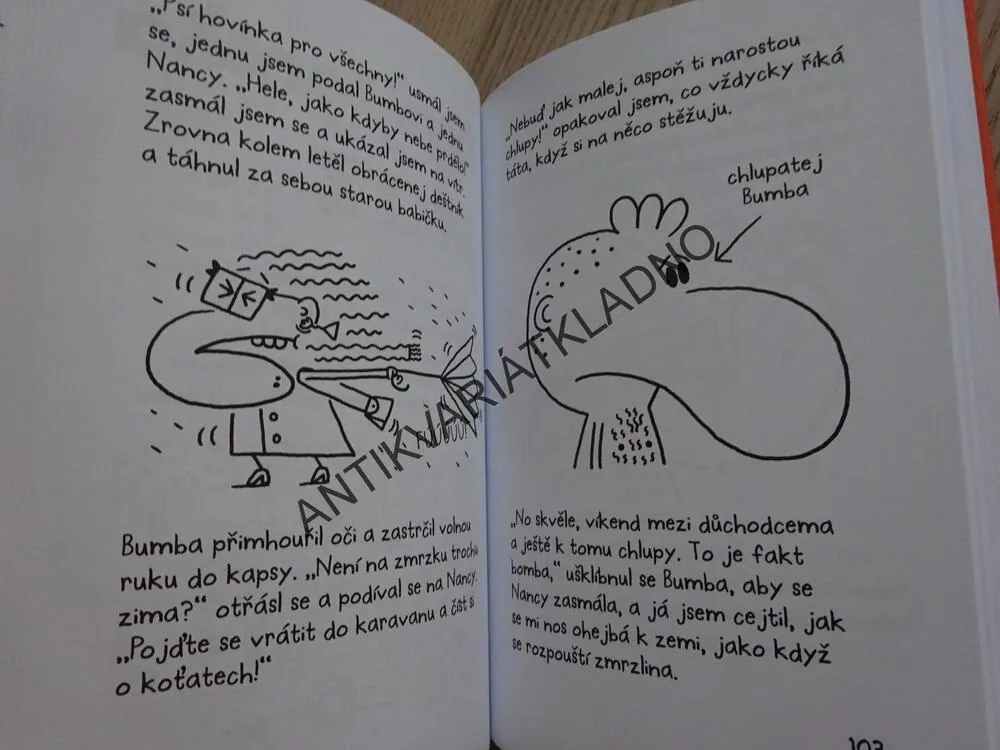 „Psí hovínka pro všechny!“ usmál jsem
se, jednu jsem podal Bumbovi a jednu
Nancy. „Hele, jako kdyby nebe prdělo!“
zasmál jsem se a ukázal jsem na vítr.
Zrovna kolem letěl obrácenej deštník
a táhnul za sebou starou babičku.
FUUUUU!
Bumba přimhouřil oči a zastrčil volnou
ruku do kapsy. „Není na zmrzku trochu
zima?“ otřásl se a podíval se na Nancy.
„Pojďte se vrátit do karavanu a číst si
o koťatech!“
„Nebuď jak malej, aspoň ti narostou
chlupy!“ opakoval jsem, co vždycky říká
táta, když si na něco stěžuju.
chlupatej
Bumba
„No skvěle, víkend mezi důchodcema
a ještě k tomu chlupy. To je fakt
bomba,“ ušklíbnul se Bumba, aby se
Nancy zasmála, a já jsem cejtil, jak
se mi nos ohejbá k zemi, jako když
se rozpouští zmrzlina.
103
ANTIKVARIÁTKLADNO